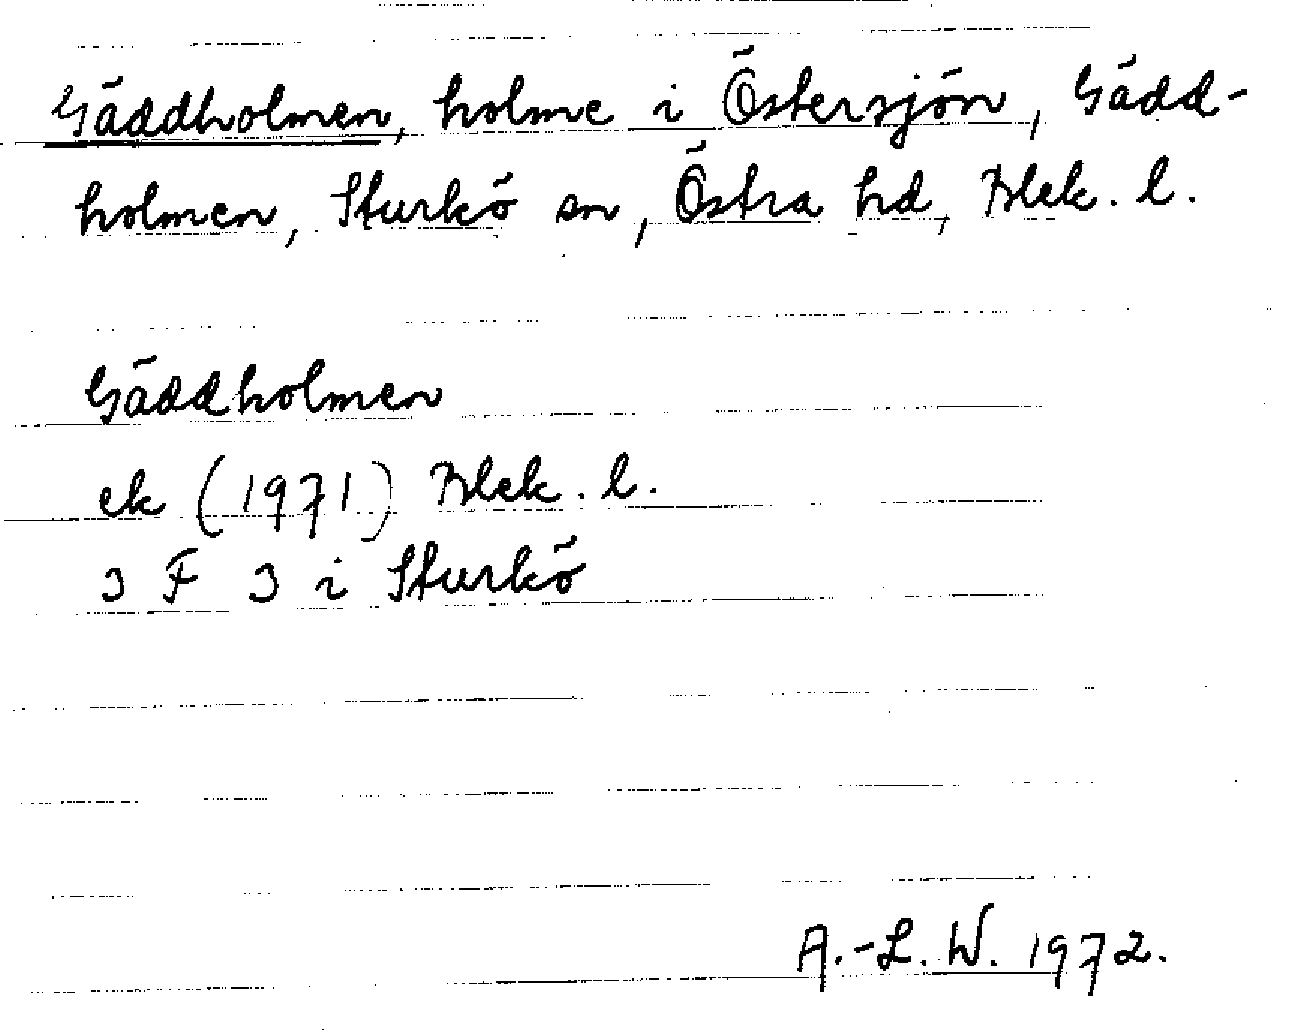 Gäddholmen, holme i Östersjön, Gädd-
holmen, Sturkö sn, Östra hd, Blek. l.
Gäddholmen
ek (1971) Blek. l.
3 F 3 i Sturkö
A.-L. W. 1972.